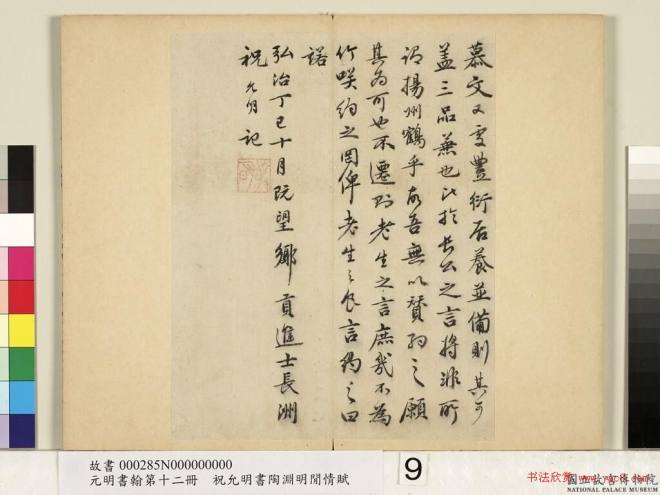 慕文又享豐衍居養並備則其可
蓋三品兼也比於長公之言將非所
謂揚州鶴乎故吾無以贊約之願
其為可也不遷則老生之言庶幾不為
竹咲約之罔俾老生之食言約之曰
諾
弘治丁巳十月既望鄉貢進士長洲
祝允明記
故書 000285N000000000
元明書翰第十二冊 祝允明書陶淵明閒情賦
9
书法欣赏
www.yac8.com
國立故宮博物院
NATIONAL PALACE MUSEUM